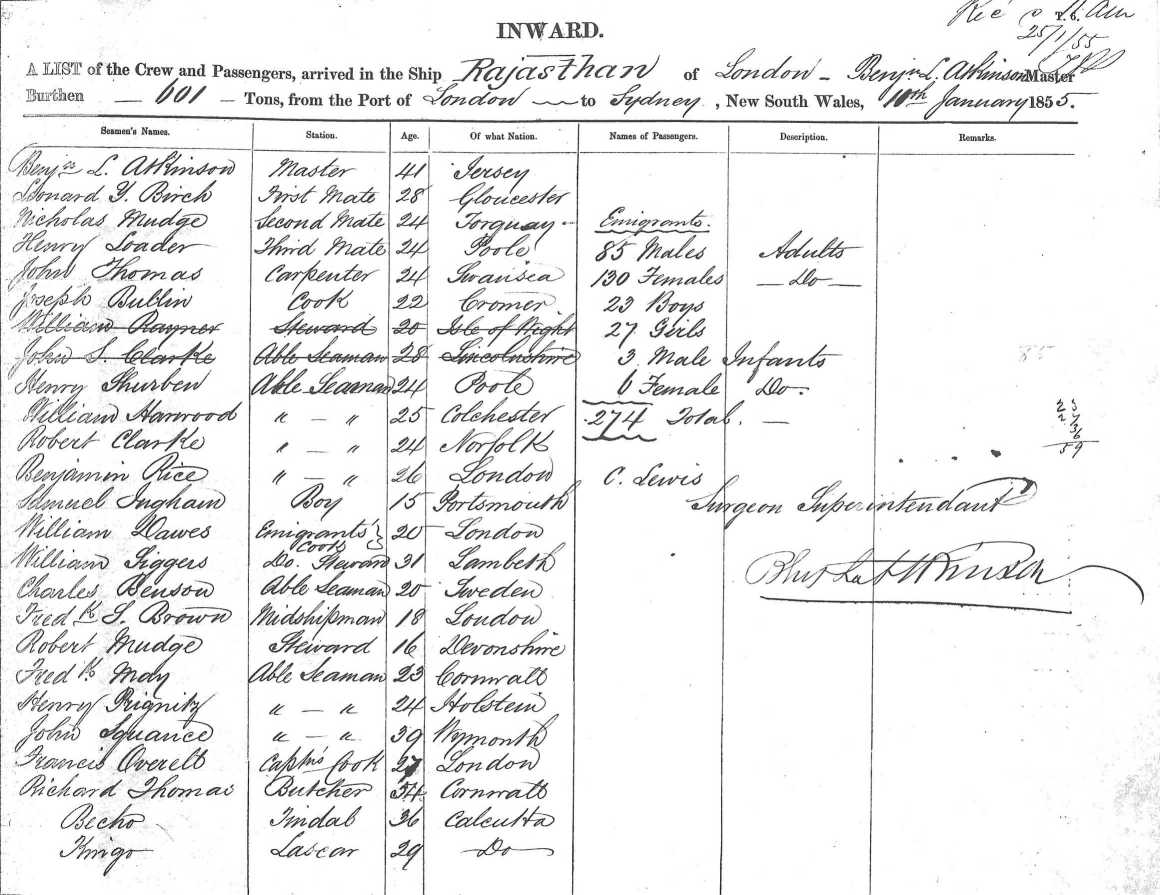 Rec'd
P. 6.
25/1/55
INWARD.
A LIST of the Crew and Passengers, arrived in the Ship Rajasthan of London - Benjn L. Atkinson Master
Burthen — 601 — Tons, from the Port of London — to Sydney, New South Wales, 10th January 1855.
Seamen's Names. Station. Age. Of what Nation. Names of Passengers. Description. Remarks.
Benjn L. Atkinson Master 41 Jersey
Leonard Y. Birch First Mate 28 Gloucester
Nicholas Mudge Second Mate 24 Torquay Emigrants.
Henry Loader Third Mate 24 Poole 85 Males Adults
John Thomas Carpenter 24 Swansea 130 Females — Do —
Joseph Bullin Cook 22 Cromer 23 Boys
William Rayner Steward 20 Isle of Wight 27 Girls
John S. Clarke Able Seaman 28 Lincolnshire 3 Male Infants
Henry Shurben Able Seaman 24 Poole 6 Female Do.
William Harwood " — " 25 Colchester 274 Total. —
Robert Clarke " — " 24 Norfolk 59
Benjamin Rice " — " 26 London C. Lewis
Samuel Ingham Boy 15 Portsmouth Surgeon Superintendant
William Dawes Emigrants' Cook 20 London
William Siggers Do. Steward 31 Lambeth
Charles Benson Able Seaman 20 Sweden
Fredk S. Brown Midshipman 18 London
Robert Mudge Steward 16 Devonshire
Fredk May Able Seaman 23 Cornwall
Henry Prignitz " — " 24 Holstein
John Squance " — " 39 Wymouth
Francis Overelt Captn's Cook 27 London
Richard Thomas Butcher 34 Cornwall
Becho Tindal 36 Calcutta
Kingo Lascar 29 — Do —